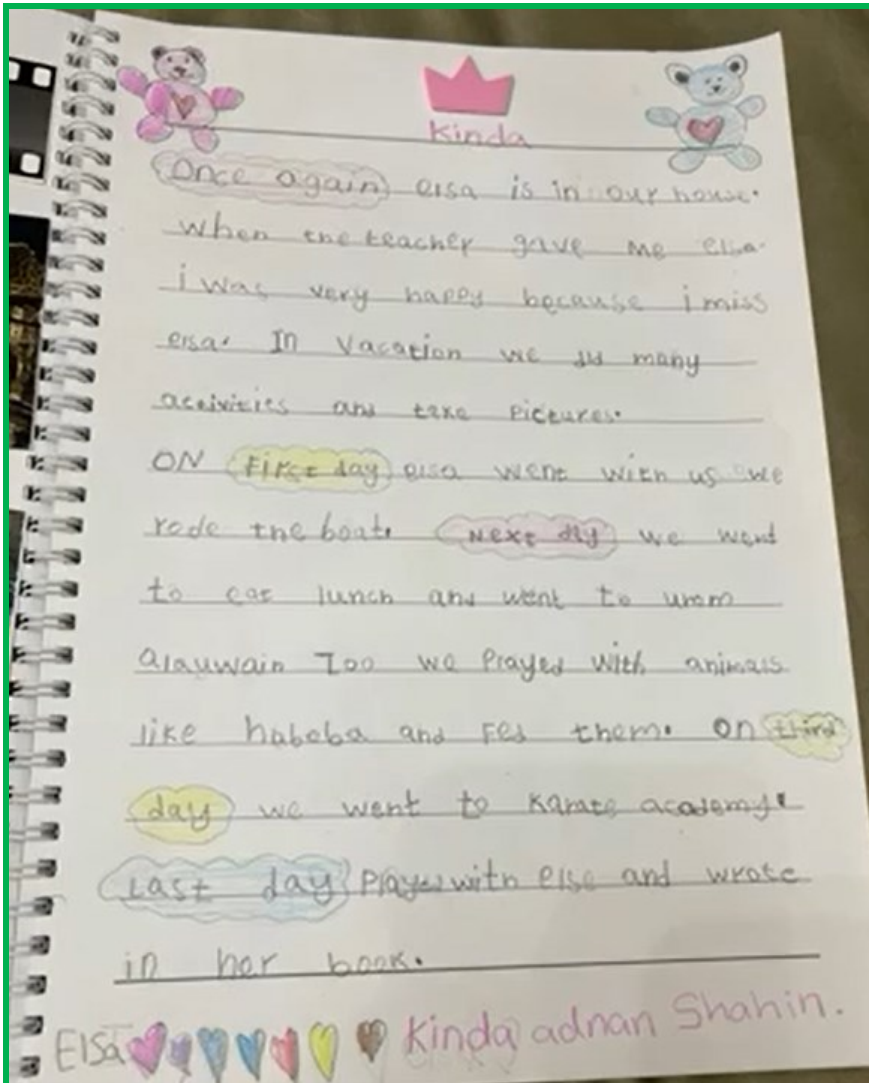 Kinda
Once again elsa is in our house.
when the teacher gave me elsa.
i was very happy because i miss
elsa. In vacation we did many
activities and take pictures.
ON First day elsa went with us we
rode the boat. Next day we went
to eat lunch and went to umm
alauwain Zoo we Played with animals
like haboba and Fed them. On third
day we went to Karate academy.
Last day Played with elsa and wrote
in her book.
Elsa Kinda adnan Shahin.